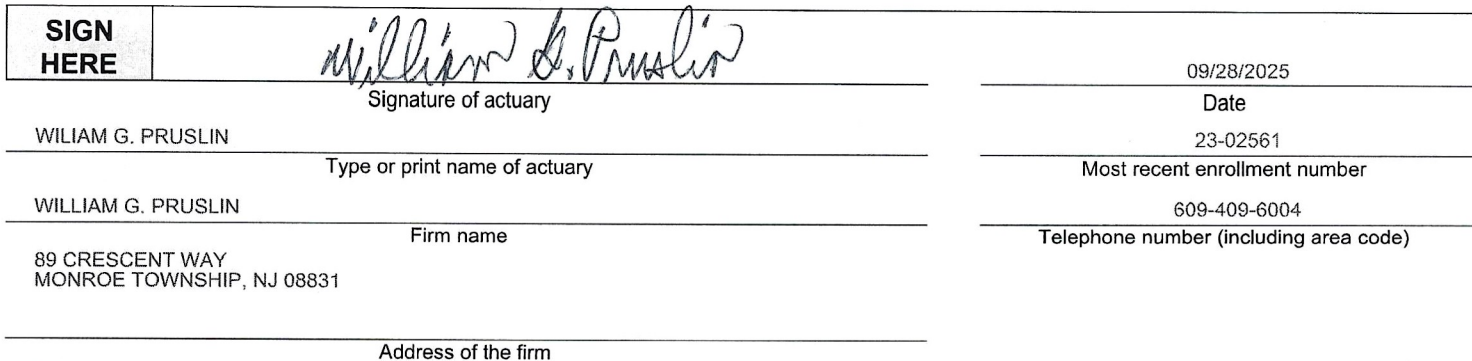 SIGN
HERE
William G. Pruslin
09/28/2025
Signature of actuary
Date
WILIAM G. PRUSLIN
23-02561
Type or print name of actuary
Most recent enrollment number
WILLIAM G. PRUSLIN
609-409-6004
Firm name
Telephone number (including area code)
89 CRESCENT WAY
MONROE TOWNSHIP, NJ 08831
Address of the firm